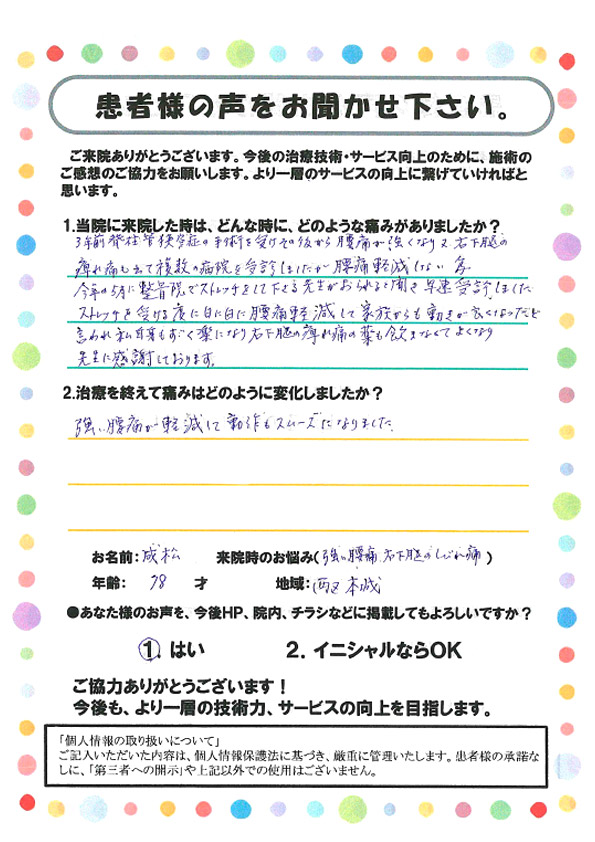 患者様の声をお聞かせ下さい。
ご来院ありがとうございます。今後の治療技術・サービス向上のために、施術の
ご感想のご協力をお願いします。より一層のサービスの向上に繋げていければと
思います。
1.当院に来院した時は、どんな時に、どのような痛みがありましたか？
3年前脊柱管狭窄症の手術を受けその後から腰痛が強くなり又右下腿の
痺れ痛も出て複数の病院を受診しましたが腰痛軽減しない為
今年の5月に整骨院でストレッチをして下さる先生がおられると聞き早速受診しました
ストレッチを受ける度に日に日に腰痛軽減して家族からも動きが良くなったと
言われ私自身もすごく楽になり右下腿の痺れ痛の薬も飲まなくてよくなり
先生に感謝しております。
2.治療を終えて痛みはどのように変化しましたか？
強い腰痛が軽減して動作もスムーズになりました
お名前：成松 来院時のお悩み（強い腰痛 右下腿のしびれ痛）
年齢： 78 才 地域：西区本城
●あなた様のお声を、今後HP、院内、チラシなどに掲載してもよろしいですか？
1. はい 2. イニシャルならOK
ご協力ありがとうございます！
今後も、より一層の技術力、サービスの向上を目指します。
「個人情報の取り扱いについて」
ご記入いただいた内容は、個人情報保護法に基づき、厳重に管理いたします。患者様の承諾な
しに、「第三者への開示」や上記以外での使用はございません。